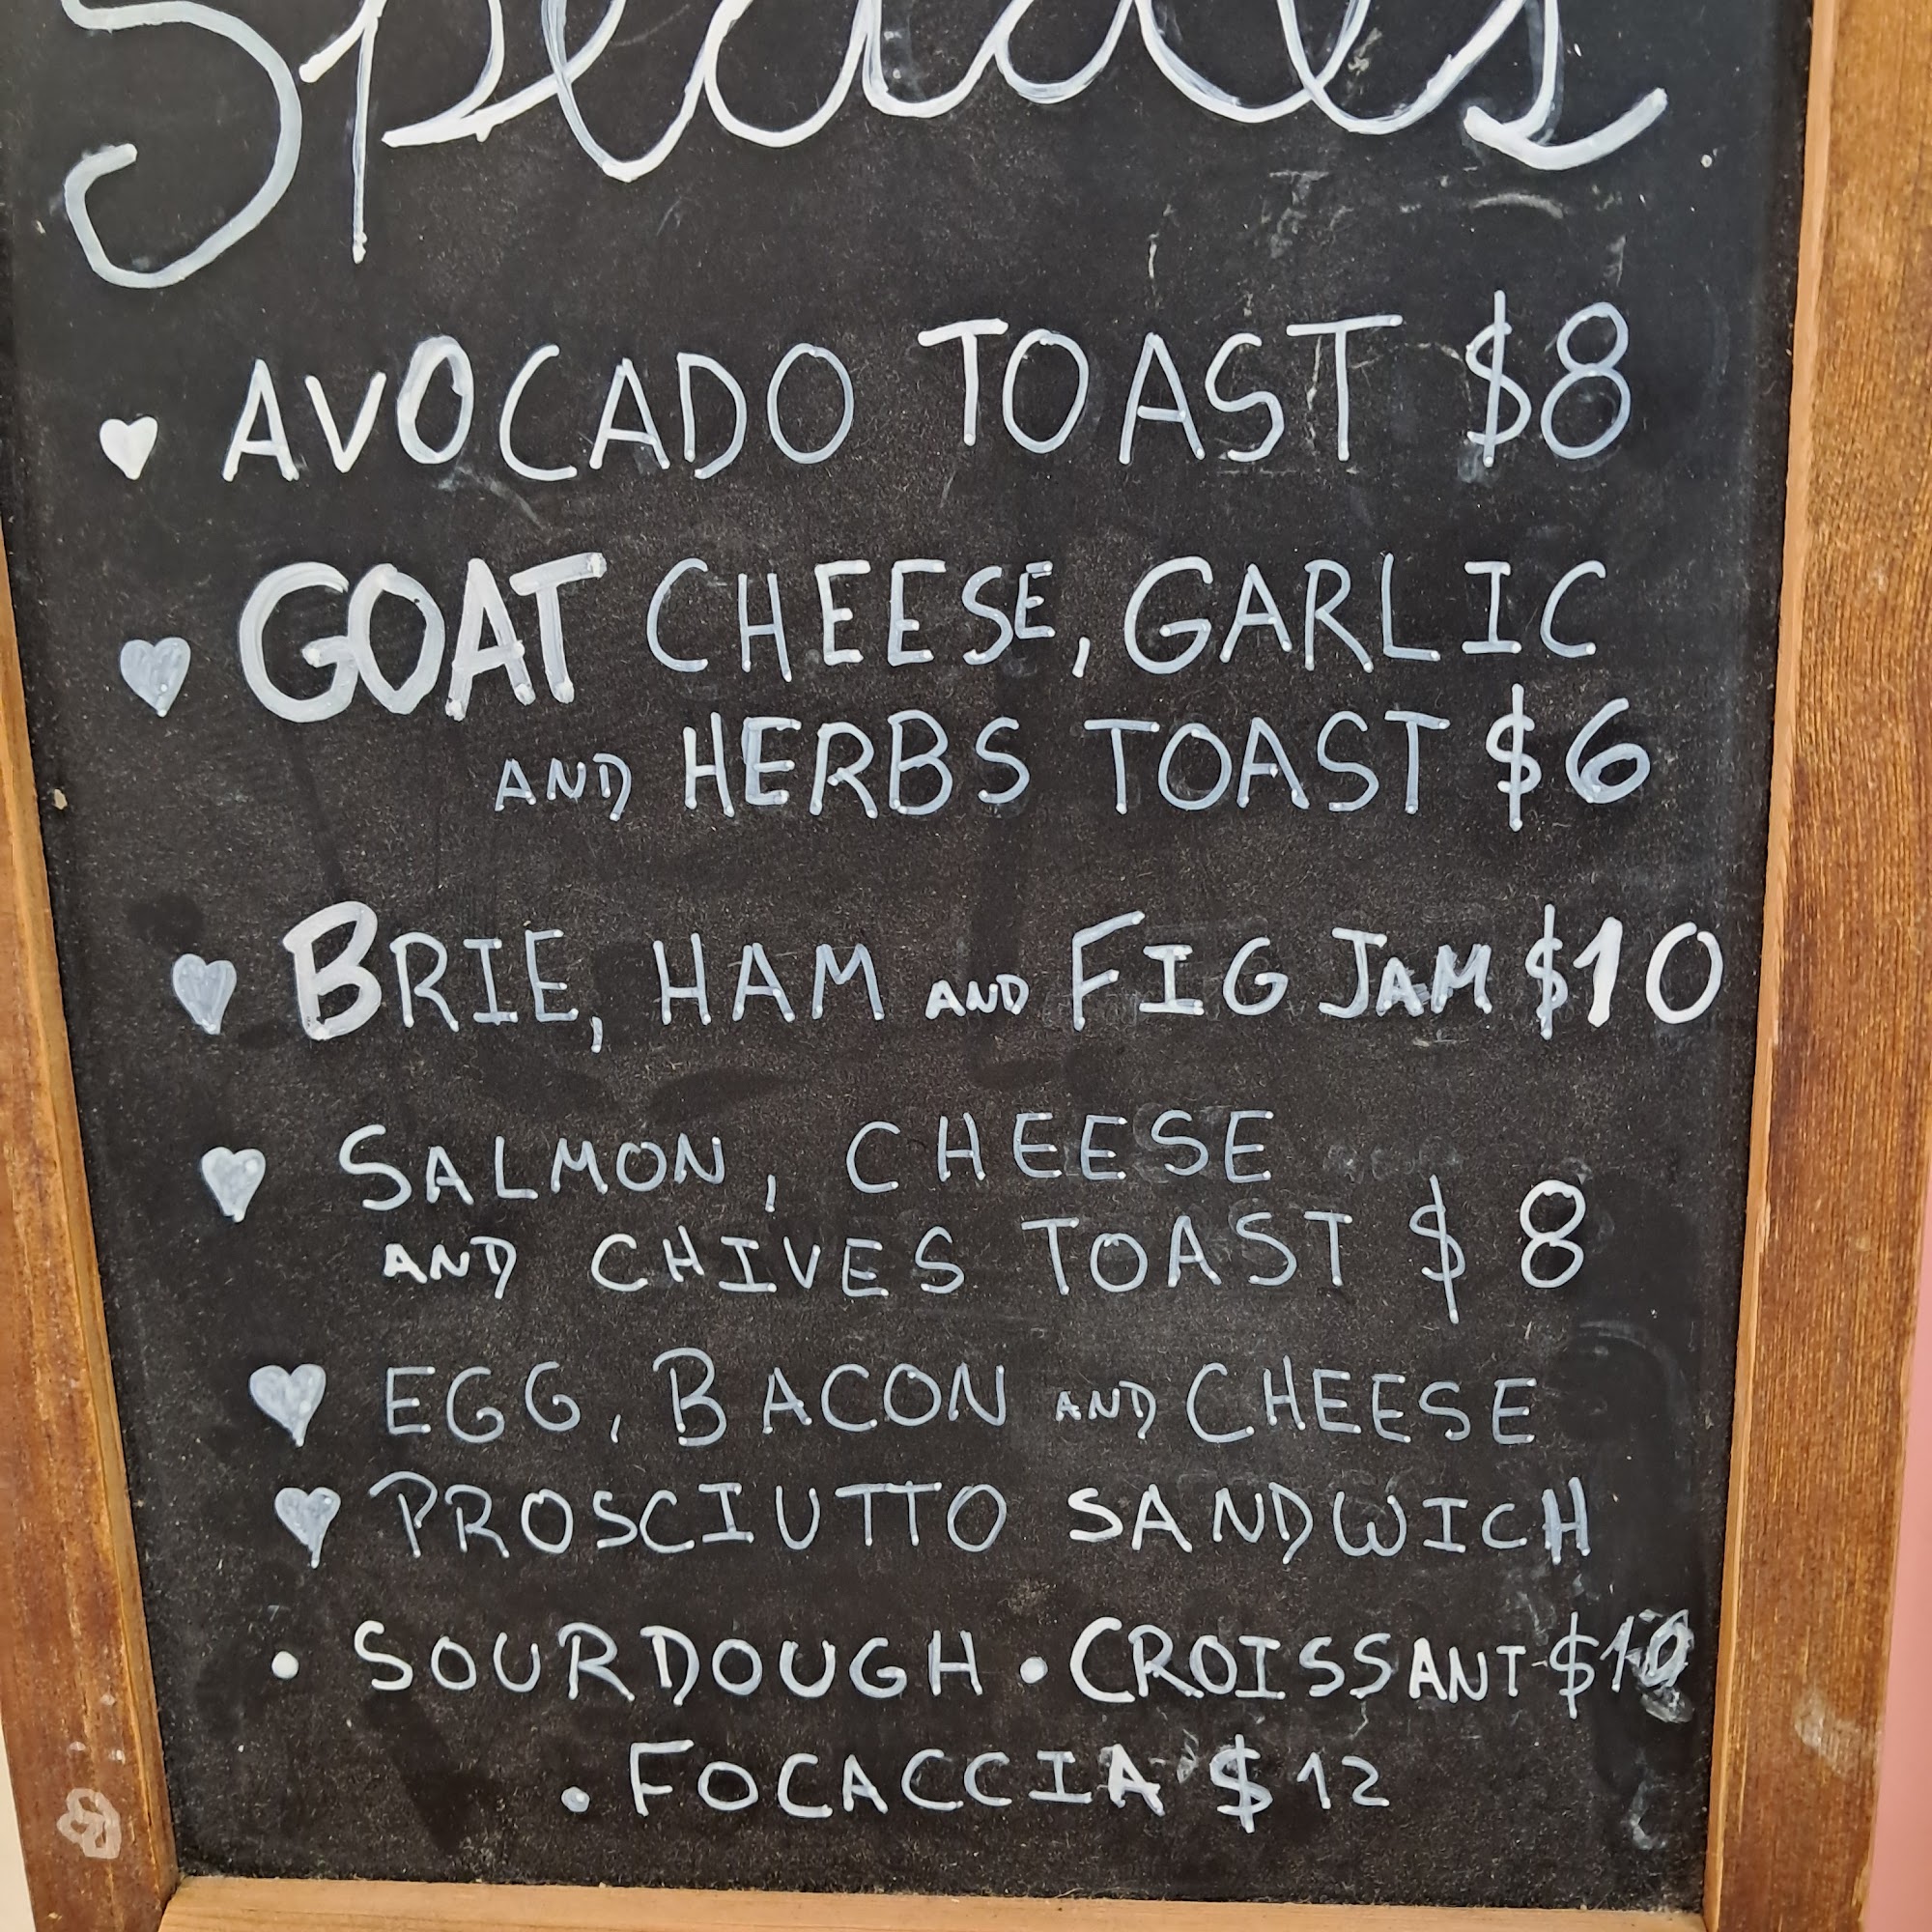 Specials
AVOCADO TOAST $8
GOAT CHEESE, GARLIC
AND HERBS TOAST $6
BRIE, HAM AND FIG JAM $10
SALMON, CHEESE
AND CHIVES TOAST $8
EGG, BACON AND CHEESE
PROSCIUTTO SANDWICH
• SOURDOUGH • CROISSANT $10
• FOCACCIA $12